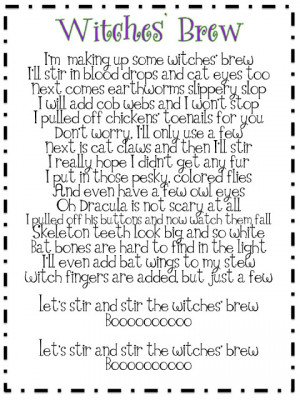 Witches' Brew
I'm making up some witches' brew
I'll stir in blood drops and cat eyes too
Next comes earthworms slippery slop
I will add cob webs and I won't stop
I pulled off chickens' toenails for you
Don't worry, I'll only use a few
Next is cat claws and then I'll stir
I really hope I didn't get any fur
I put in those pesky, colored flies
And even have a few owl eyes
Oh Dracula is not scary at all
I pulled off his buttons and now watch them fall
Skeleton teeth look big and so white
Bat bones are hard to find in the light
I'll even add bat wings to my stew
Witch fingers are added, but just a few
Let's stir and stir the witches' brew
Boooooooooo
Let's stir and stir the witches' brew
Boooooooooo